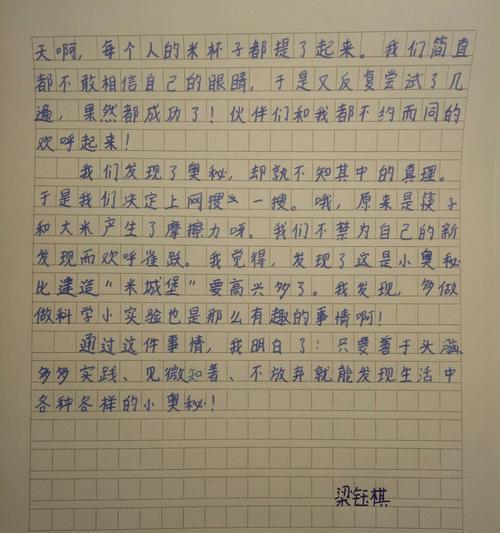 天啊，每个人的米杯子都提了起来。我们简直
都不敢相信自己的眼睛，于是又反复尝试了几
遍，果然都成功了！伙伴们和我都不约而同的
欢呼起来！
我们发现了奥秘，却孰不知其中的真理。
于是我们决定上网搜一搜。哦，原来是筷子
和大米产生了摩擦力呀。我们不禁为自己的新
发现而欢呼雀跃。我觉得，发现了这是小奥秘
比建造“米城堡”要高兴多了。我发现，多做
做科学小实验也是那么有趣的事情啊！
通过这件事情，我明白了：只要善于头脑、
多多实践、见微知著、不放弃就能发现生活中
各种各样的小奥秘！
梁钰棋